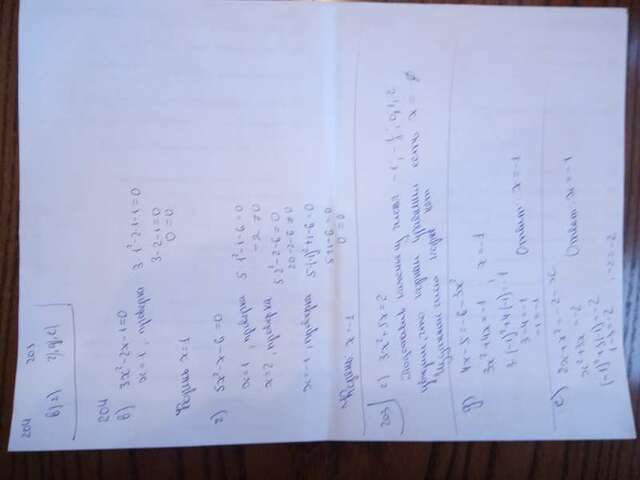 204 203
в) г) г), д), е)
204
в) 3x²-2x-1=0
x=1, проверка 3·1²-2·1-1=0
3-2-1=0
0=0
Корень x=1
г) 5x²-x-6=0
x=1, проверка 5·1²-1-6=0
-2≠0
x=2, проверка 5·2²-2-6=0
20-2-6≠0
x=-1, проверка 5·(-1)²+1-6=0
5+1-6=0
0=0
Корень: x=-1
203 3x²+5x=2
числа
что корни есть x = ∅
нет
д) 4x-5=-6-3x²
3x²+4x=-1 x=-1
3·(-1)²+4·(-1)=-1
3-4=-1
-1=-1
Ответ: x=-1
е) 2x+x²=-2-x
x²+3x=-2
Ответ: x=-1
(-1)²+3(-1)=-2
1-3=-2, -2=-2